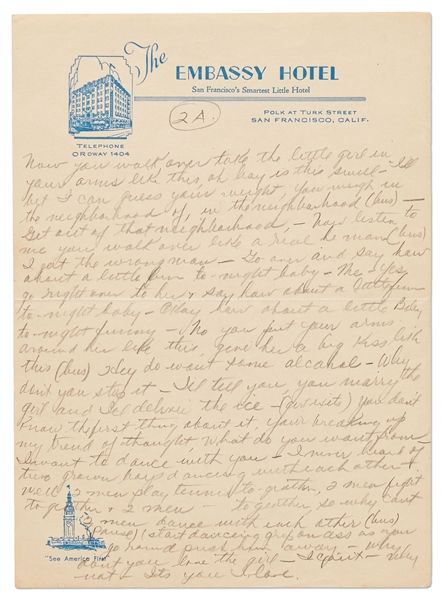 The
EMBASSY HOTEL
San Francisco's Smartest Little Hotel
POLK AT TURK STREET
SAN FRANCISCO, CALIF.
TELEPHONE
ORDWAY 1404
2A.
Now you walk over take the little girl in
your arms like this, oh boy is this swell - I'll
bet I can guess your weight, you weigh in
the neighborhood of, in the neighborhood (bus) -
Get out of that neighborhood, - Now listen to
me you walk over like a real he man (bus)
I got the wrong man - Go over and say how
about a little fun to-night baby - Me - Yes,
go right over to her & say how about a little fun
to-night baby - Okay how about a little
to-night funny - No you put your arms
around her like this, give her a big kiss like
this (bus) Hey do want some alcohol - Why
don't you stop it - I'll tell you, you marry the
girl and I'll deliver the ice - (gets sets) You don't
know the first thing about it, your breaking up
my trend of thought what do you want now -
I want to dance with you - I never heard of
two grown boys dancing with each other -
well 2 men play tennis to-gether, 2 men fight
to-gether & 2 men - to-gether so why can't
2 men dance with each other (bus)
(pause) (start dancing grip on ass as you
go round push him away - why
don't you love the girl - I can't - Why
not - It's you I love.
"See America First"